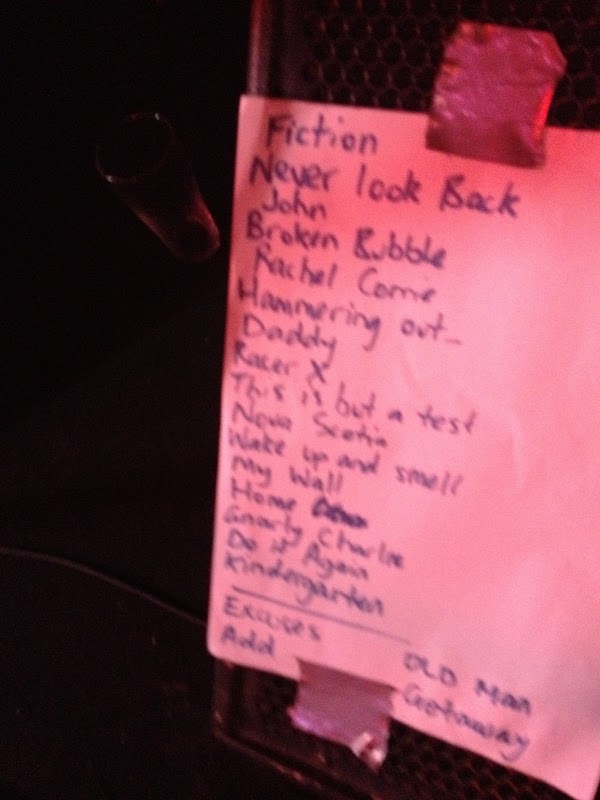 Fiction
Never look Back
John
Broken Bubble
Rachel Corrie
Hammering out_
Daddy
Racer X
This is but a test
Nova Scotia
Wake up and smell
My Wall
Home
Gnarly Charlie
Do it Again
Kindergarten
Excuses
Add
OLD Man
Getaway